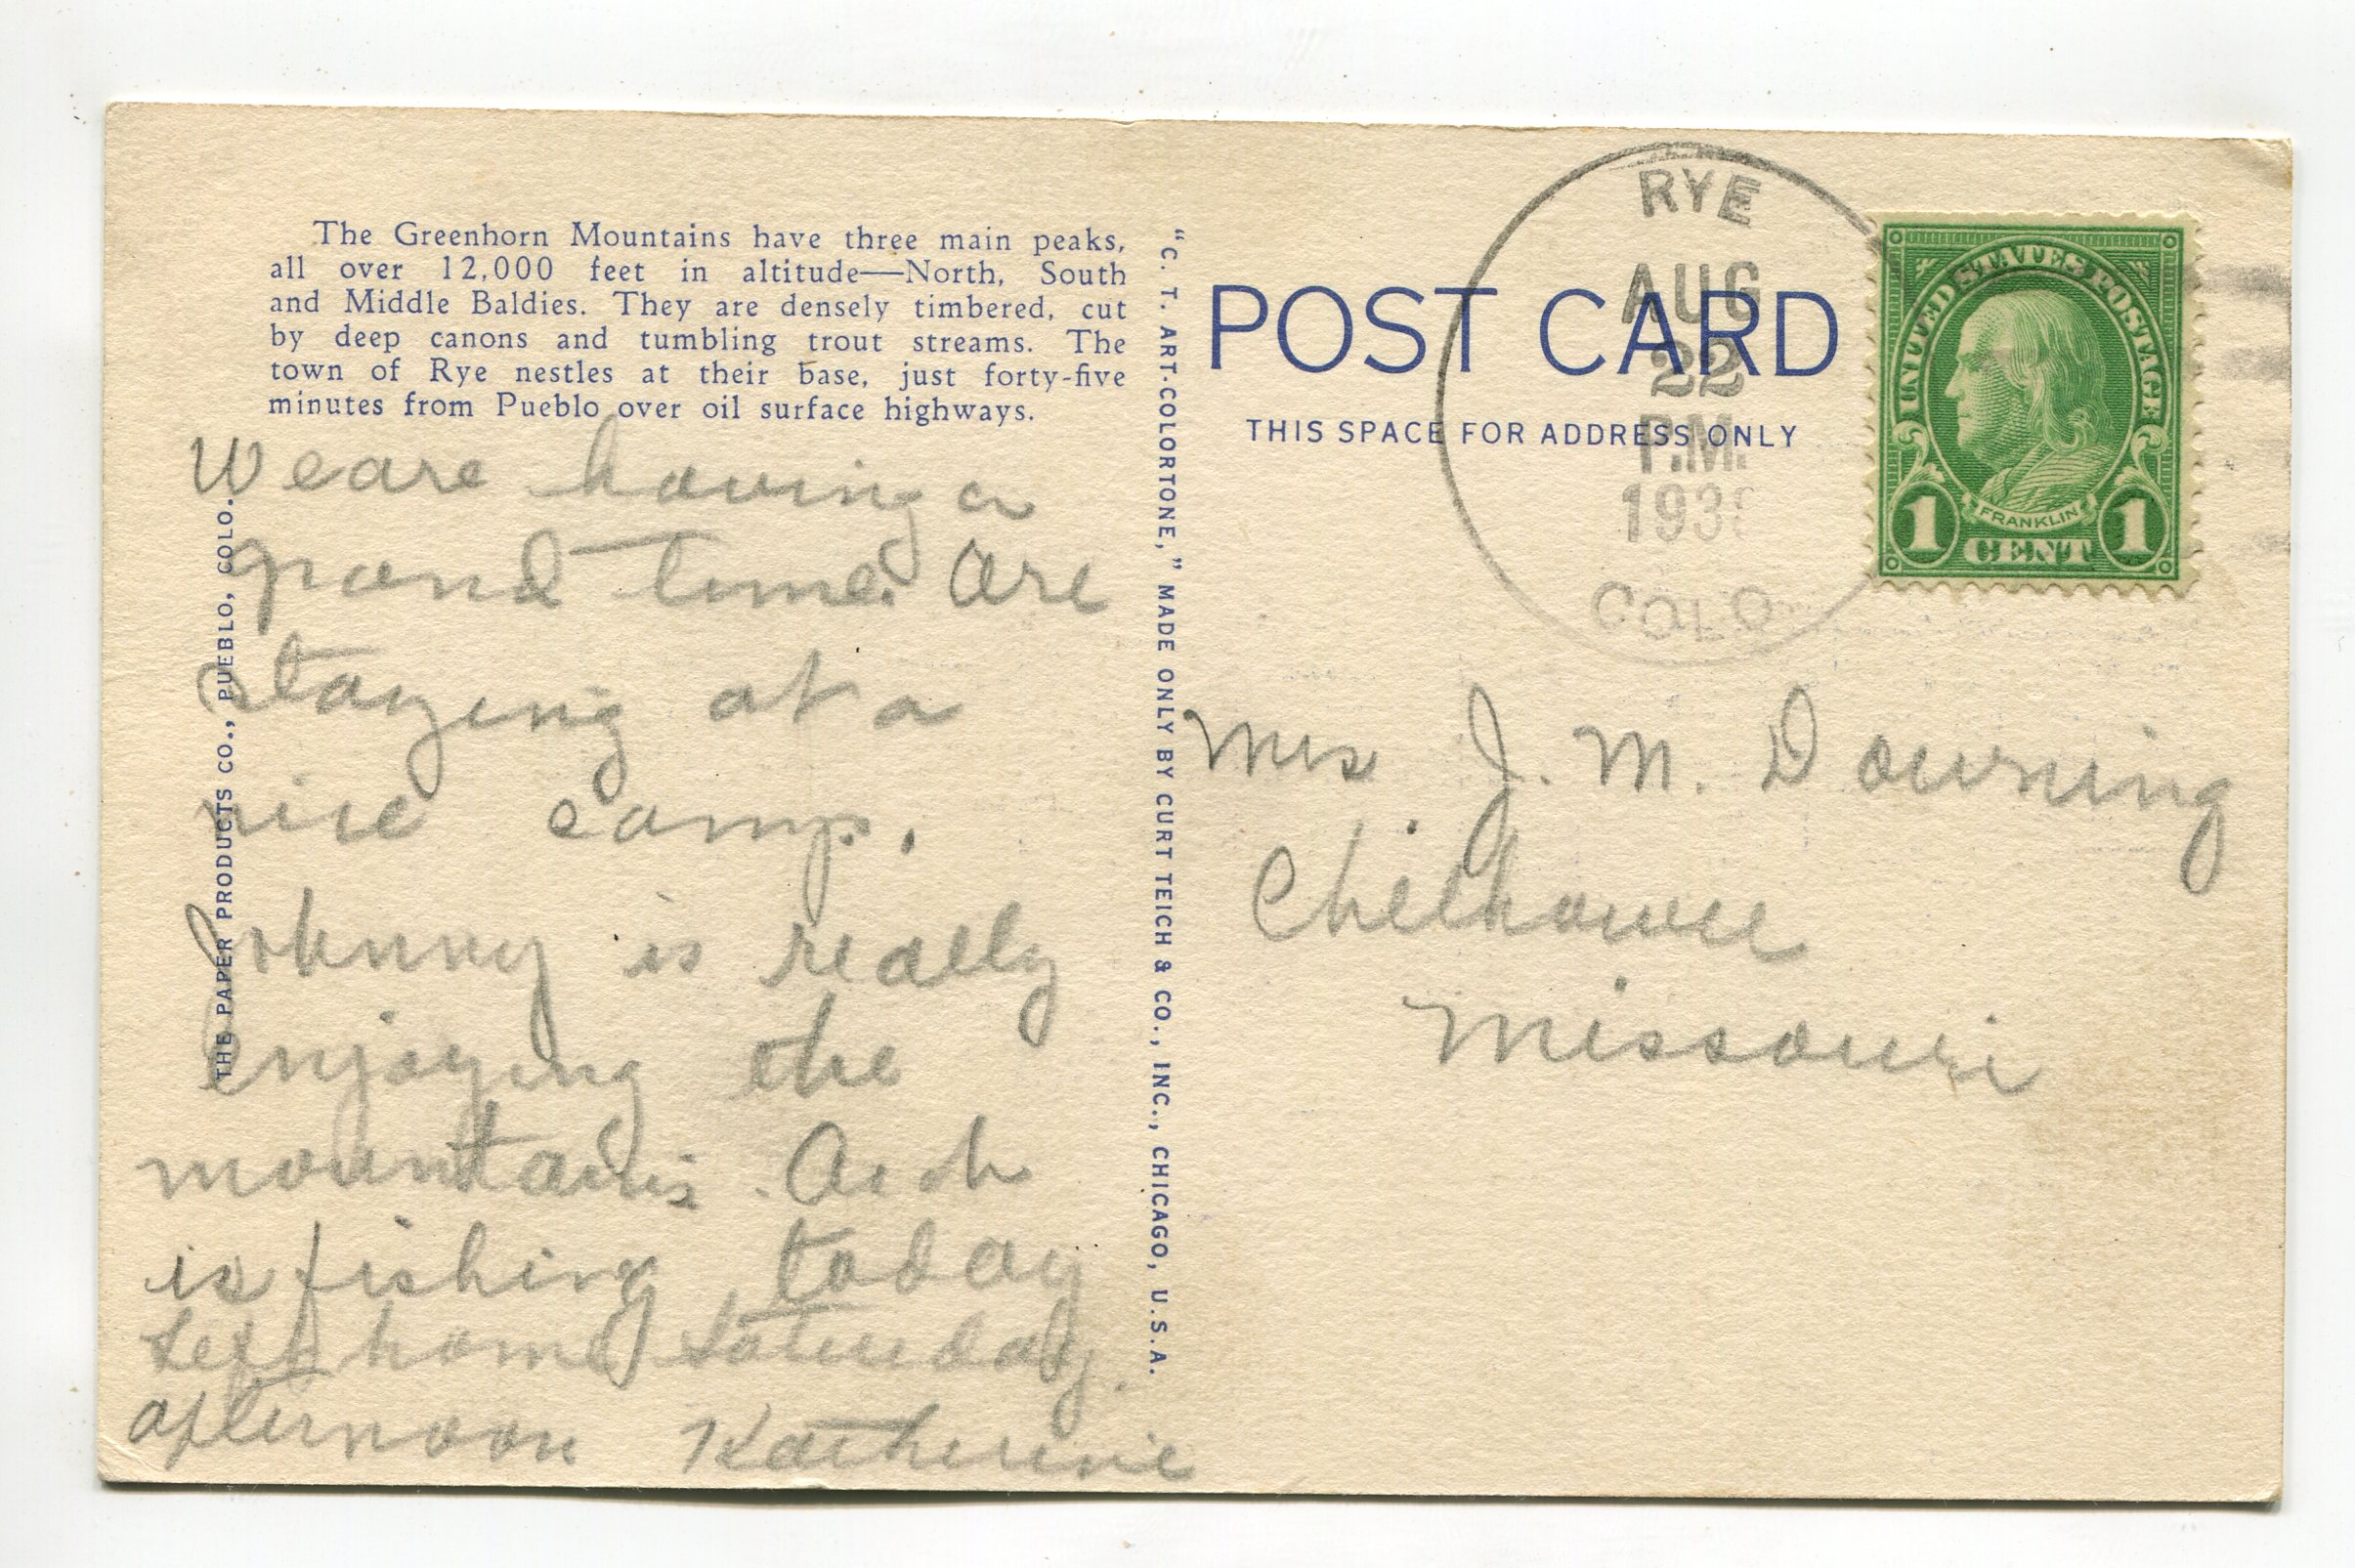 The Greenhorn Mountains have three main peaks,
all over 12,000 feet in altitude—North, South
and Middle Baldies. They are densely timbered, cut
by deep canons and tumbling trout streams. The
town of Rye nestles at their base, just forty-five
minutes from Pueblo over oil surface highways.
We are having a
grand time. Are
staying at a
nice camp.
Johnny is really
enjoying the
mountains. Arch
is fishing today
Left home Saturday
afternoon Katherine
THE PAPER PRODUCTS CO., PUEBLO, COLO.
"C. T. ART-COLORTONE," MADE ONLY BY CURT TEICH & CO., INC., CHICAGO, U.S.A.
POST CARD
THIS SPACE FOR ADDRESS ONLY
RYE
AUG
22
P.M.
COLO
UNITED STATES POSTAGE
FRANKLIN
1 CENT 1
Mrs J. M. Downing
Chilhowee
Missouri